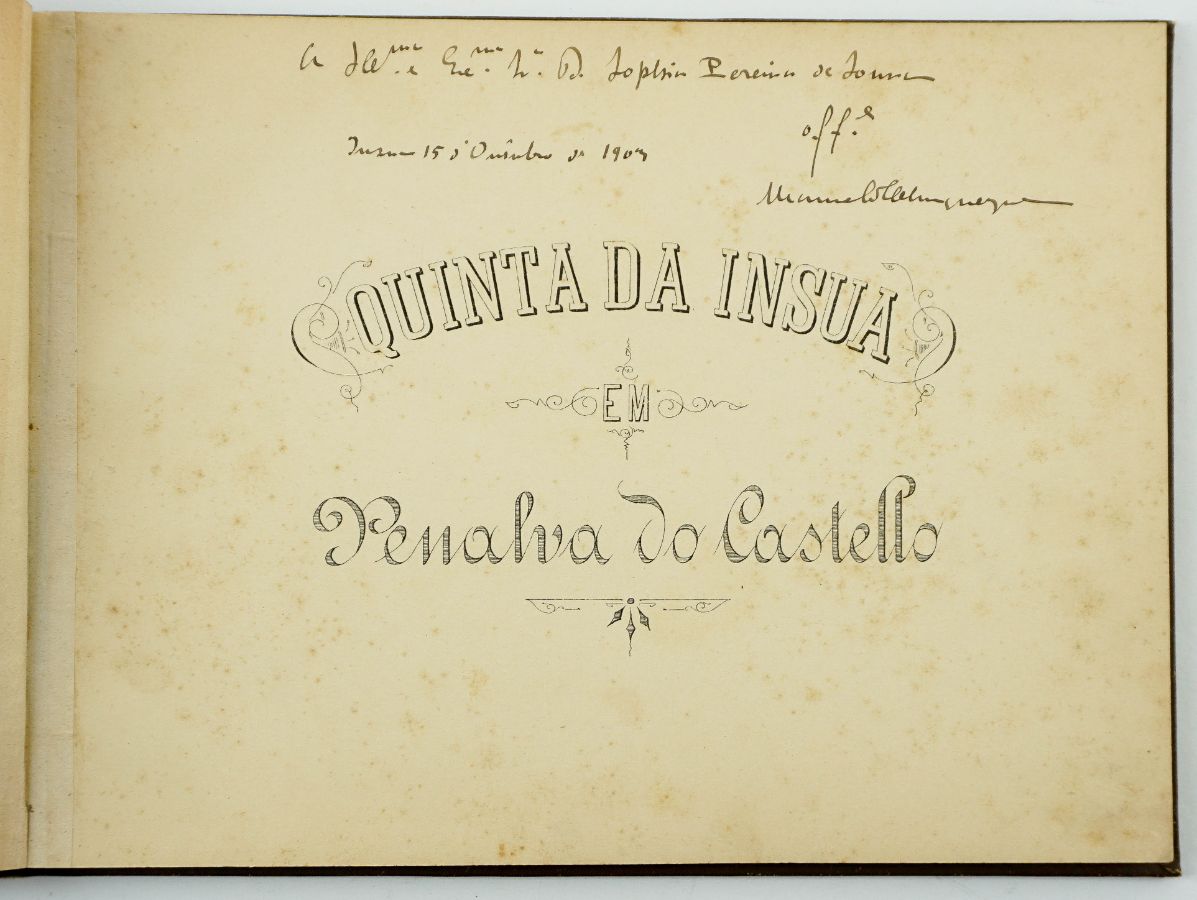 A Illma. e Exma. Sra. Da. Sophia Pereira de Sousa
off.e
Insua 15 d'Outubro de 1903
Manuel d'Albuquerque
QUINTA DA INSUA
EM
Penalva do Castello